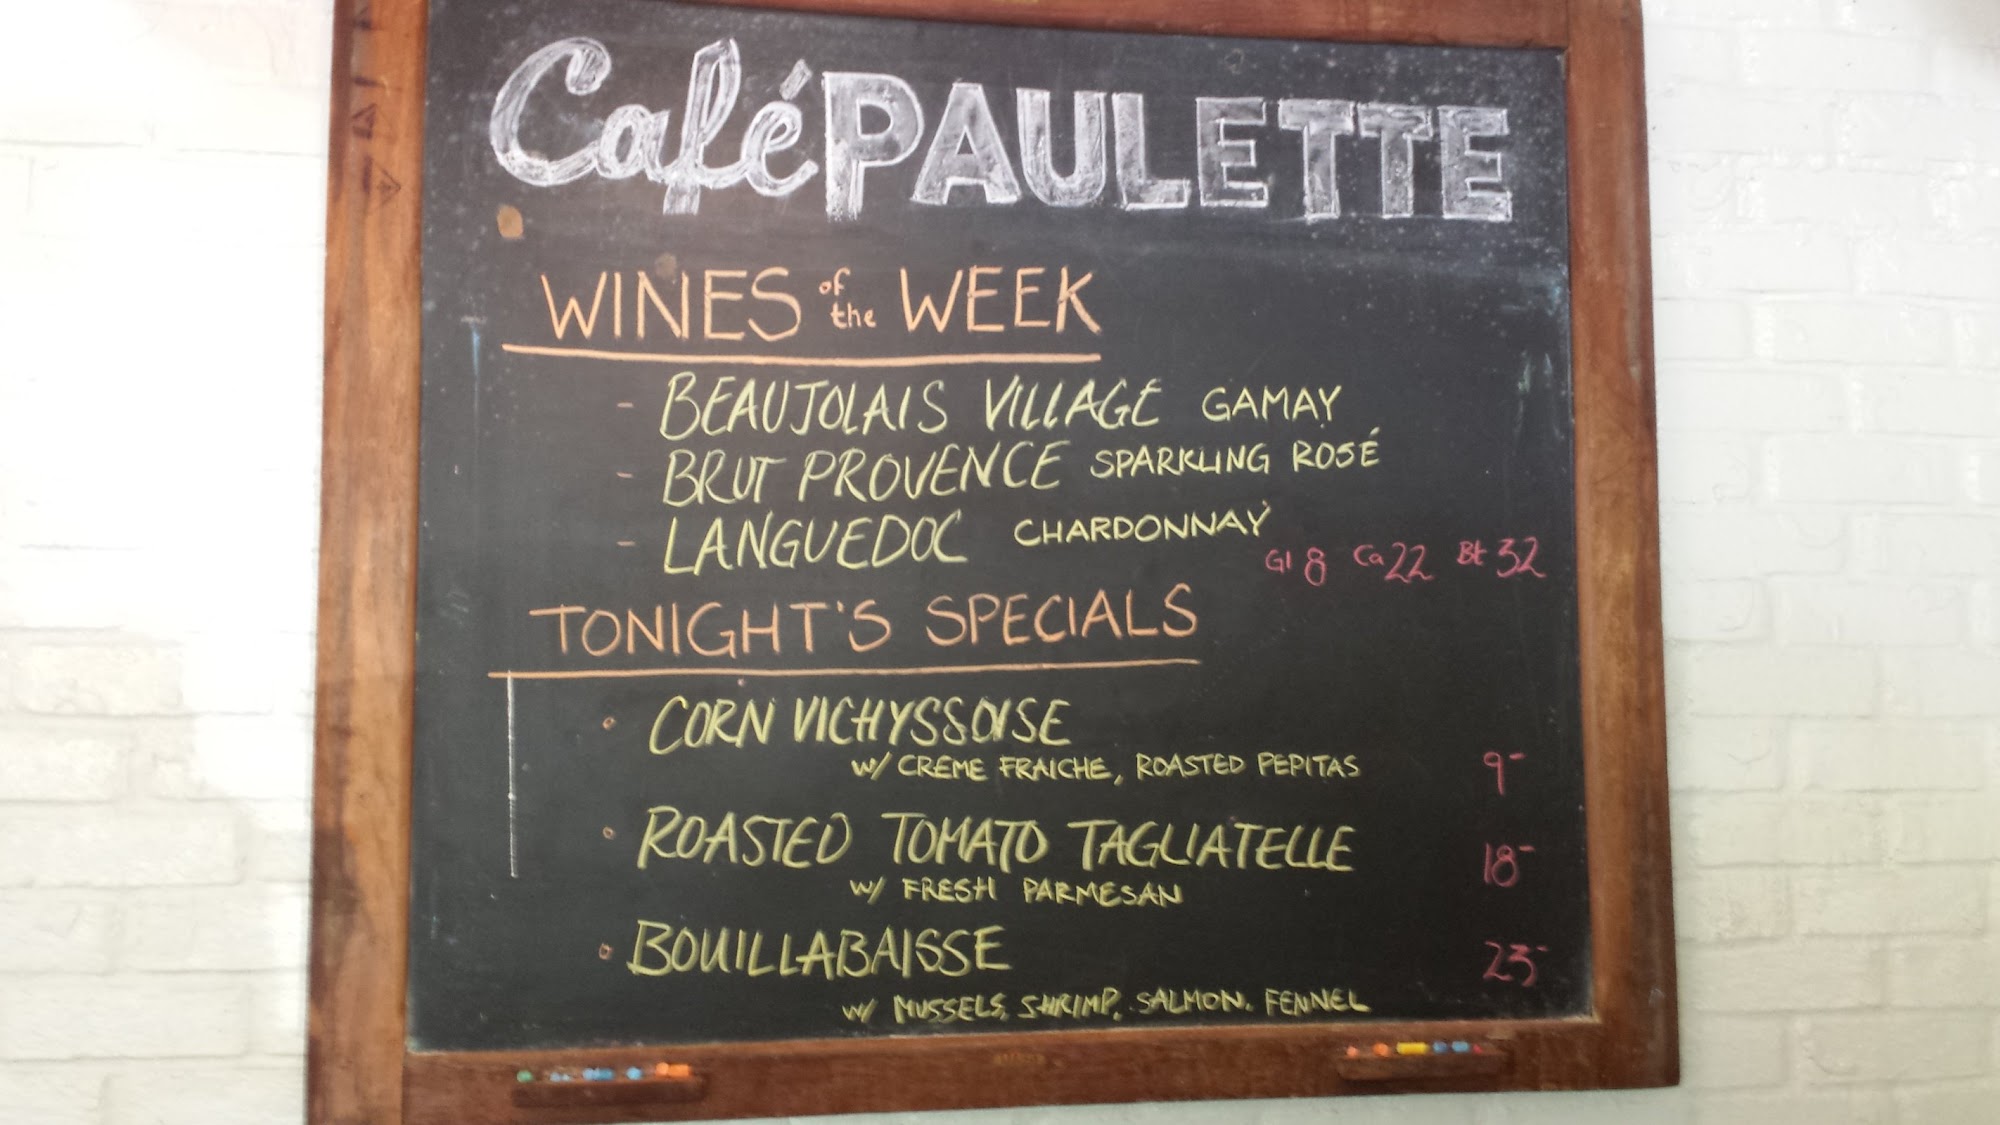 Café PAULETTE
WINES of the WEEK
- BEAUJOLAIS VILLAGE GAMAY
- BRUT PROVENCE SPARKLING ROSÉ
- LANGUEDOC CHARDONNAY
Gl 8 Ca 22 Bt 32
TONIGHT'S SPECIALS
• CORN VICHYSSOISE
w/ CREME FRAICHE, ROASTED PEPITAS 9-
• ROASTED TOMATO TAGLIATELLE 18-
w/ FRESH PARMESAN
• BOUILLABAISSE 23-
w/ MUSSELS, SHRIMP, SALMON, FENNEL